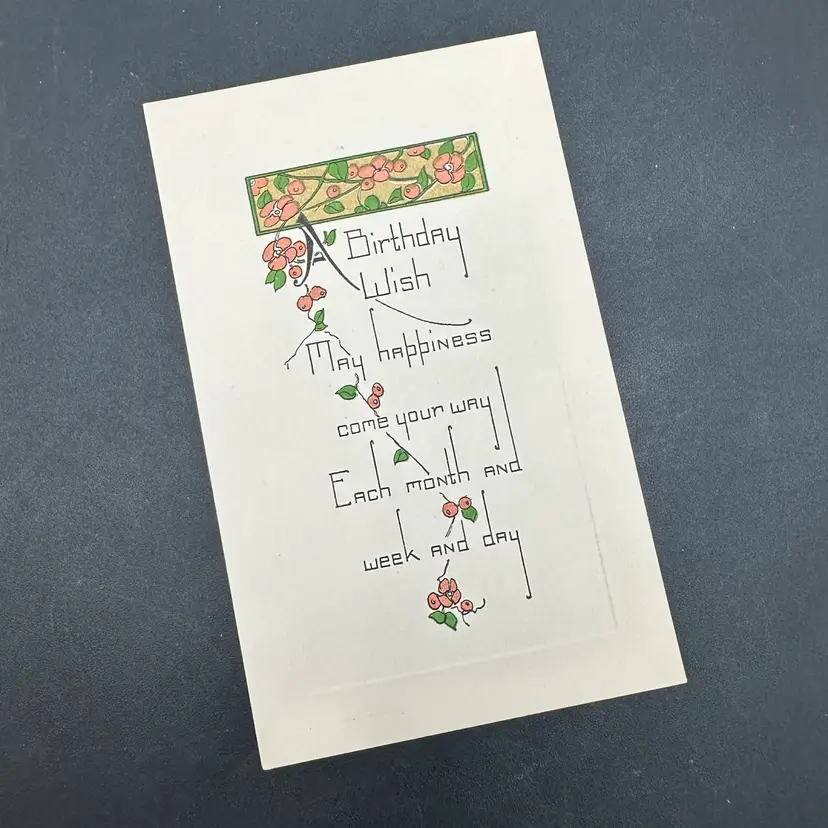 A Birthday
Wish
May happiness
come your way
Each month and
week and day